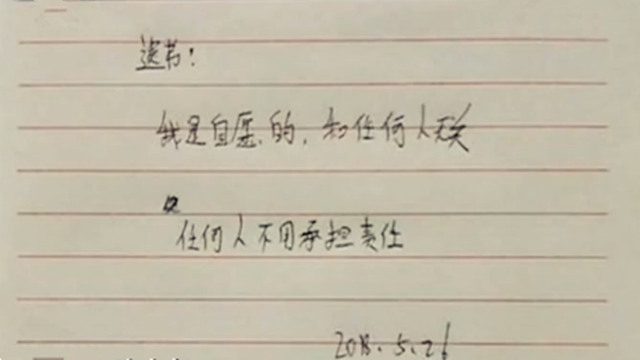 遗书：
我是自愿的，和任何人无关
任何人不用承担责任
2018.5.26